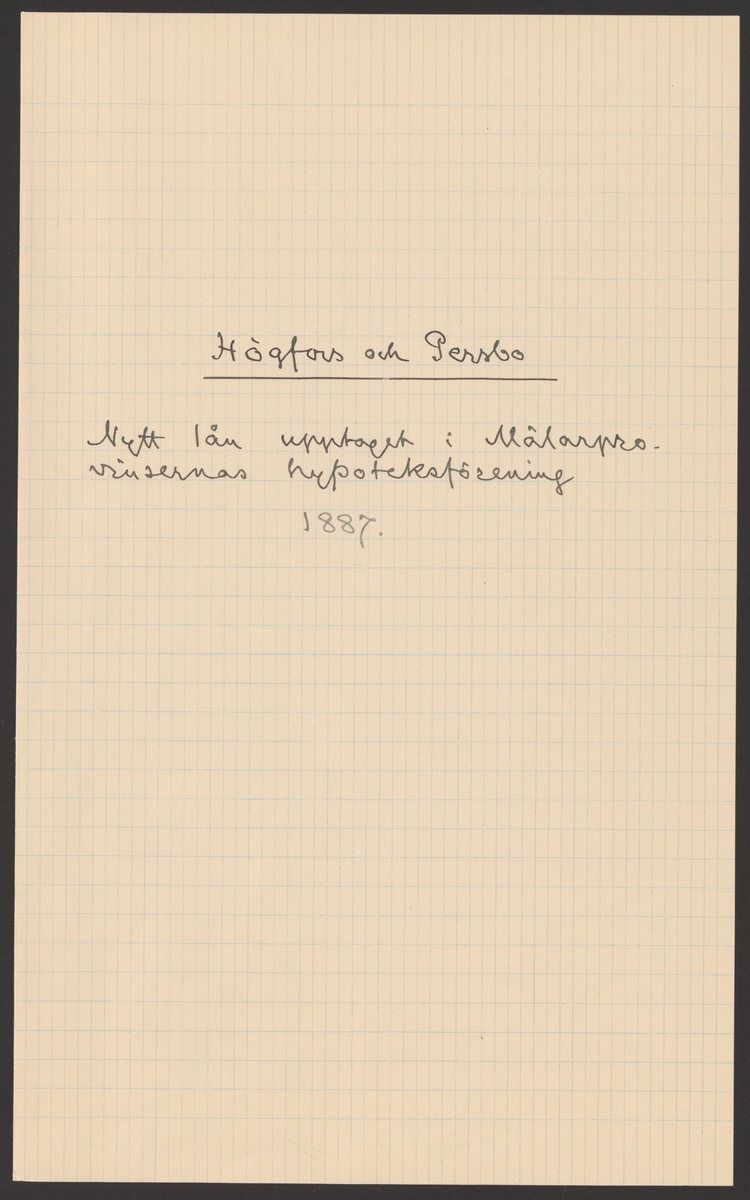 Högfors och Persbo
Nytt lån upptaget i Mälarpro-
vinsernas hypoteksförening
1887.